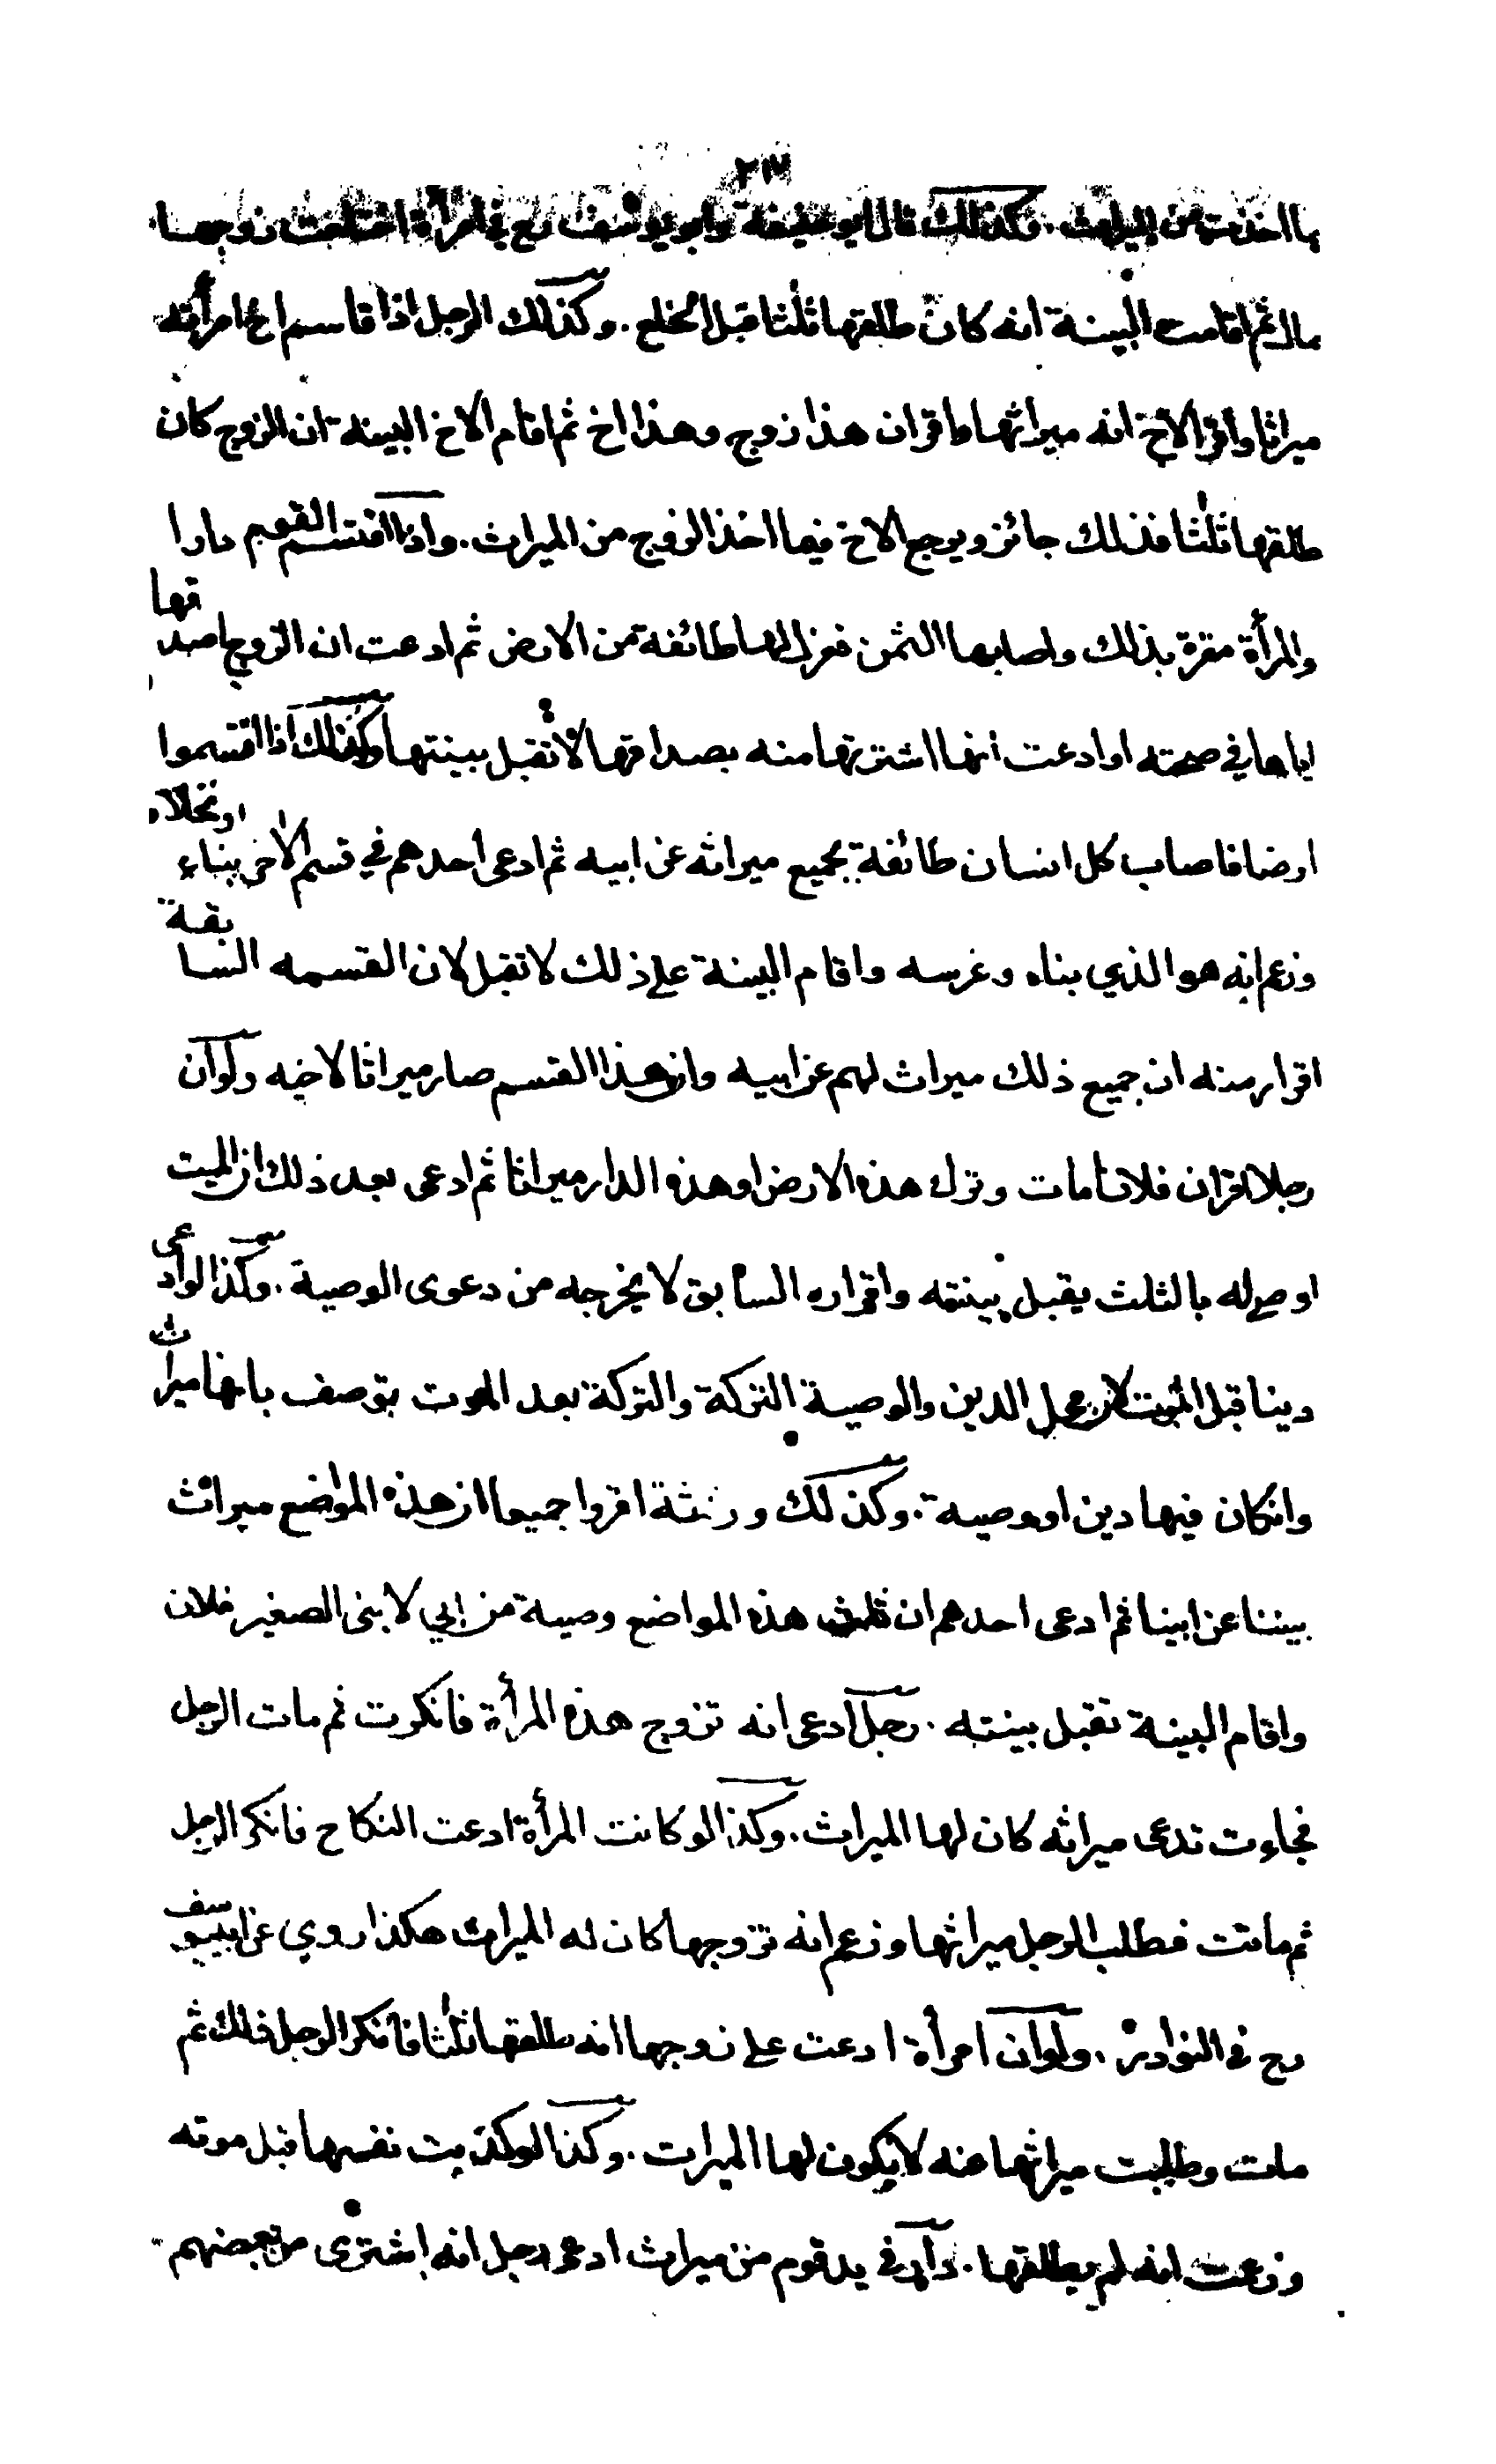 ٢١٧
ما اخذت من الميراث . وكذلك قال ابو حنيفة وابو يوسف رح في امرأة اختلعت زوجها
مال ثم اقامت البينة انه كان طلقها ثلثا قبل الخلع . وكذلك الرجل اذا قاسم اخ امرأته
ميراثا واقر الاخ انه ميراثها واقر ان هذا زوج وهذا اخ ثم اقام الاخ البينة ان الزوج كان
طلقها ثلثا فذلك جائز ويرجع الاخ فيما اخذ الزوج من الميراث . واذا اقتسم القوم دارا
والمرأة مقرة بذلك واصابها الثمن فعزل لها طائفة من الارض ثم ادعت ان الزوج اصدقها
اياها في صحته او ادعت انها اشترتها منه بصداقها لا تقبل ببينتها وكذلك اذا اقتسموا
ارضا فاصاب كل انسان طائفة بجميع ميراثه عن ابيه ثم ادعى احدهم في قسم الآخر بناء او نخلا
وزعم انه هو الذي بناه وغرسه واقام البينة على ذلك لا تقبل لان القسمه السابقة
اقرار منه ان جميع ذلك ميراث لهم عن ابيه وان هذا القسم صار ميراثا لاخيه ولو ان
رجلا اقر ان فلانا مات وترك هذه الارض او هذه الدار ميراثا ثم ادعى بعد ذلك ان الميت
اوصى له بالثلث يقبل بينته واقراره السابق لا يخرجه من دعوى الوصية . وكذا لو ادعى
دينا قبل الموت لان محل الدين والوصية التركة والتركة بعد الموت يتوصف بانها ميراث
وان كان فيها دين او وصية . وكذلك ورثة اقروا جميعا ان هذه المواضع ميراث
بيننا عن ابينا ثم ادعى احدهم ان ثلث هذه المواضع وصية من ابي لابنى الصغير فلان
واقام البينة تقبل بينته . رجل ادعى انه تزوج هذه المرأة فانكرت ثم مات الرجل
فجاءت تدعى ميراثه كان لها الميراث . وكذا لو كانت المرأة ادعت النكاح فانكر الرجل
ثم ماتت فطلب الرجل ميراثها وزعم انه تزوجها كان له الميراث هكذا روي عن ابي يوسف
رح في النوادر . ولو ان امرأة ادعت على زوجها انه طلقها ثلثا فانكر الرجل ذلك ثم
مات وطلبت ميراثها منه لا يكون لها الميراث . وكذا لو كذبت نفسها قبل موته
وزعمت انه لم يطلقها . دار في يد قوم من ميراث ادعى رجل انه اشترى من بعضهم